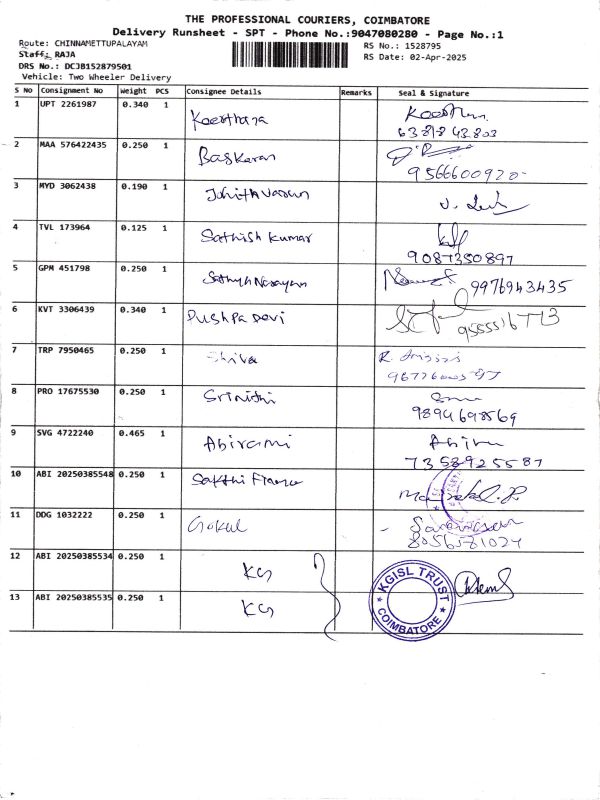 THE PROFESSIONAL COURIERS, COIMBATORE
Delivery Runsheet - SPT - Phone No.:9047080280 - Page No.:1
Route: CHINNAMETTUPALAYAM
Staff: RAJA
DRS No.: DCJB152879501
Vehicle: Two Wheeler Delivery
RS No.: 1528795
RS Date: 02-Apr-2025
S No Consignment No Weight PCS Consignee Details Remarks Seal & Signature
1 UPT 2261987 0.340 1 Keerthana
2 MAA 576422435 0.250 1 Baskaran
9566600920
3 MYD 3062438 0.190 1
4 TVL 173964 0.125 1 Sathish Kumar
9087350897
5 GPM 451798 0.250 1 Sathya Narayan 9976943435
6 KVT 3306439 0.340 1 Pushpa Devi
7 TRP 7950465 0.250 1 Shiva
8 PRO 17675530 0.250 1 Srinithi
9894698569
9 SVG 4722240 0.465 1 Abirami
7358925587
10 ABI 20250385548 0.250 1 Sakthi
11 DDG 1032222 0.250 1 Gokul
8056581024
12 ABI 20250385534 0.250 1 KG
13 ABI 20250385535 0.250 1 KG
KGISL TRUST
COIMBATORE